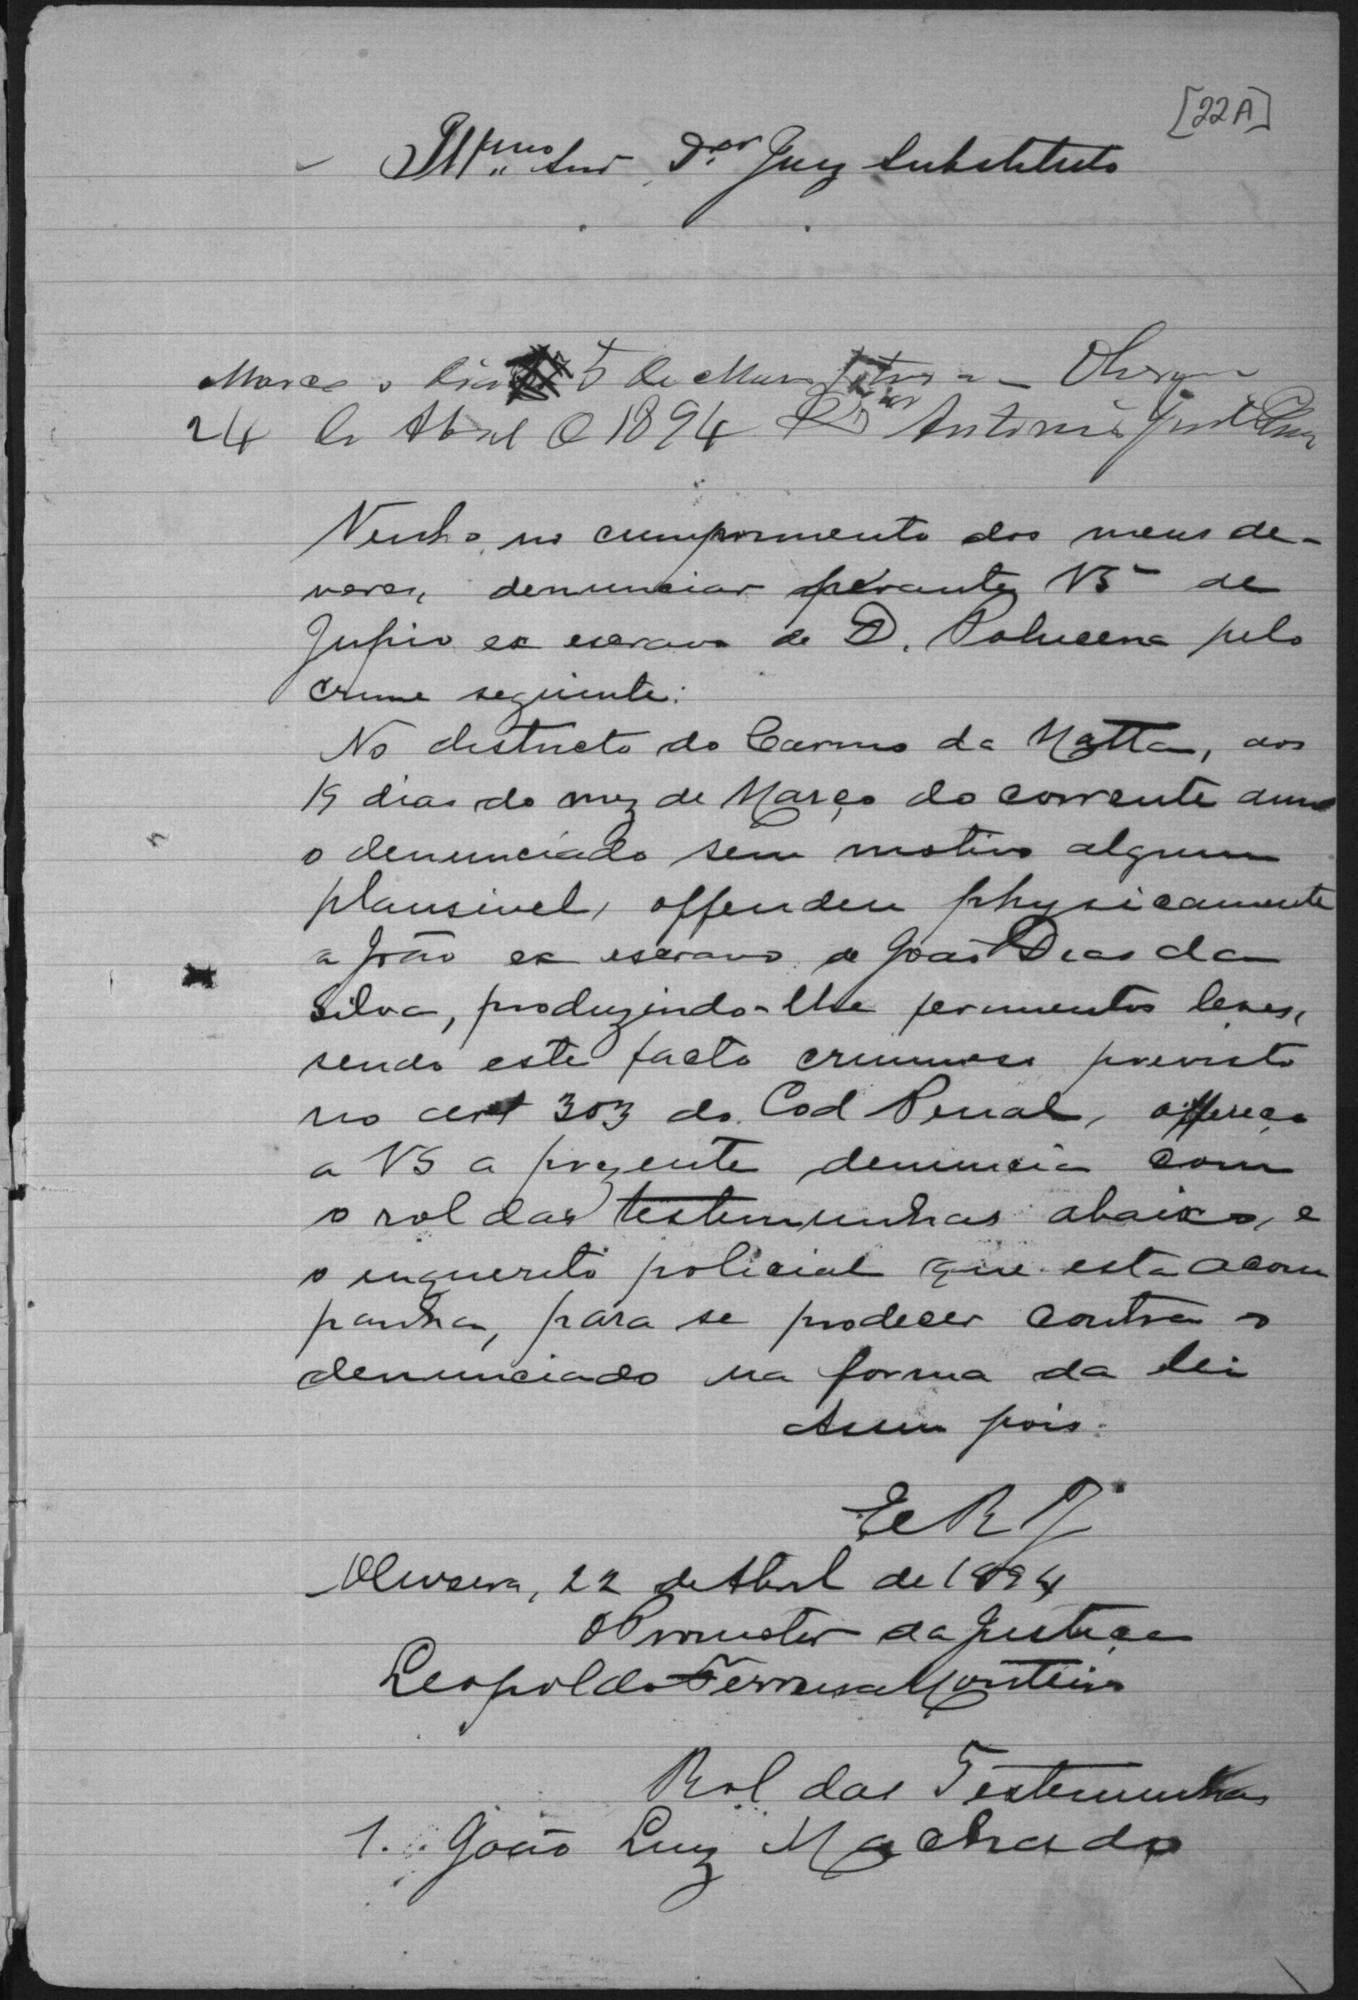 [22A]
Illmo Snr Dor Juiz Substituto
Marco o dia 5 de Maio
24 de Abril de 1894 Antonio
Venho, no cumprimento dos meus de-
veres, denunciar perante VS de
ex escravo de D. Policena pelo
crime seguinte:
No districto do Carmo da Matta, aos
19 dias do mez de Março do corrente anno
o denunciado sem motivo algum
plausivel, offendeu physicamente
a João ex escravo de João Dias da
Silva, produzindo-lhe ferimentos leves,
sendo este facto criminoso previsto
no art 303 do Cod Penal, offereço
a VS a prezente denuncia com
o rol das testemunhas abaixo, e
o inquerito policial que esta acom
panha, para se proceder contra o
denunciado na forma da lei
Assim pois.
E R J
Oliveira, 22 de Abril de 1894
O Promotor da Justiça
Leopoldo Ferreira Monteiro
Rol das Testemunhas
1. João Luiz Machado